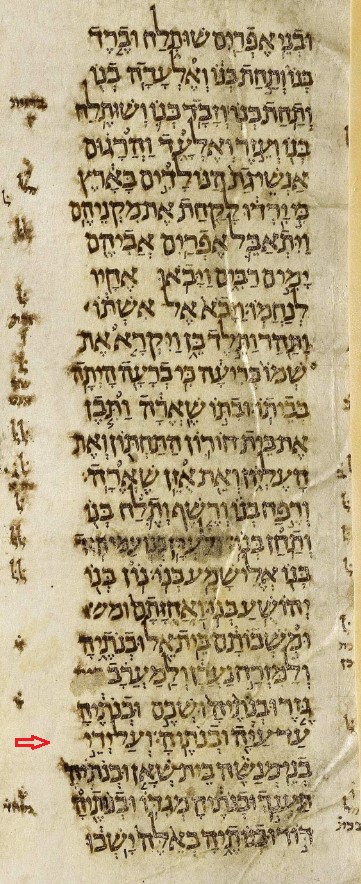 ובני אפרים שותלח וברד
בנו ותחת בנו ואלעדה בנו
ותחת בנו וזבד בנו ושותלח
בנו ועזר ואלעד והרגום
אנשי גת הנולדים בארץ
כי ירדו לקחת את מקניהם
ויתאבל אפרים אביהם
ימים רבים ויבאו אחיו
לנחמו ויבא אל אשתו
ותהר ותלד בן ויקרא את
שמו בריעה כי ברעה היתה
בביתו ובתו שארה ותבן
את בית חורון התחתון ואת
העליון ואת אזן שארה
ורפח בנו ורשף ותלח בנו
ותחן בנו לעדן בנו עמיהוד
בנו אלישמע בנו נון בנו
יהושע בנו ואחזתם ומש
ומשבותם בית אל ובנתיה
ולמזרח נערן ולמערב
גזר ובנתיה ושכם ובנתיה
עד עיה ובנתיה ועל ידי
בני מנשה בית שאן ובנתיה
תענך ובנתיה מגדו ובנתיה
דור ובנותיה באלה ישבו